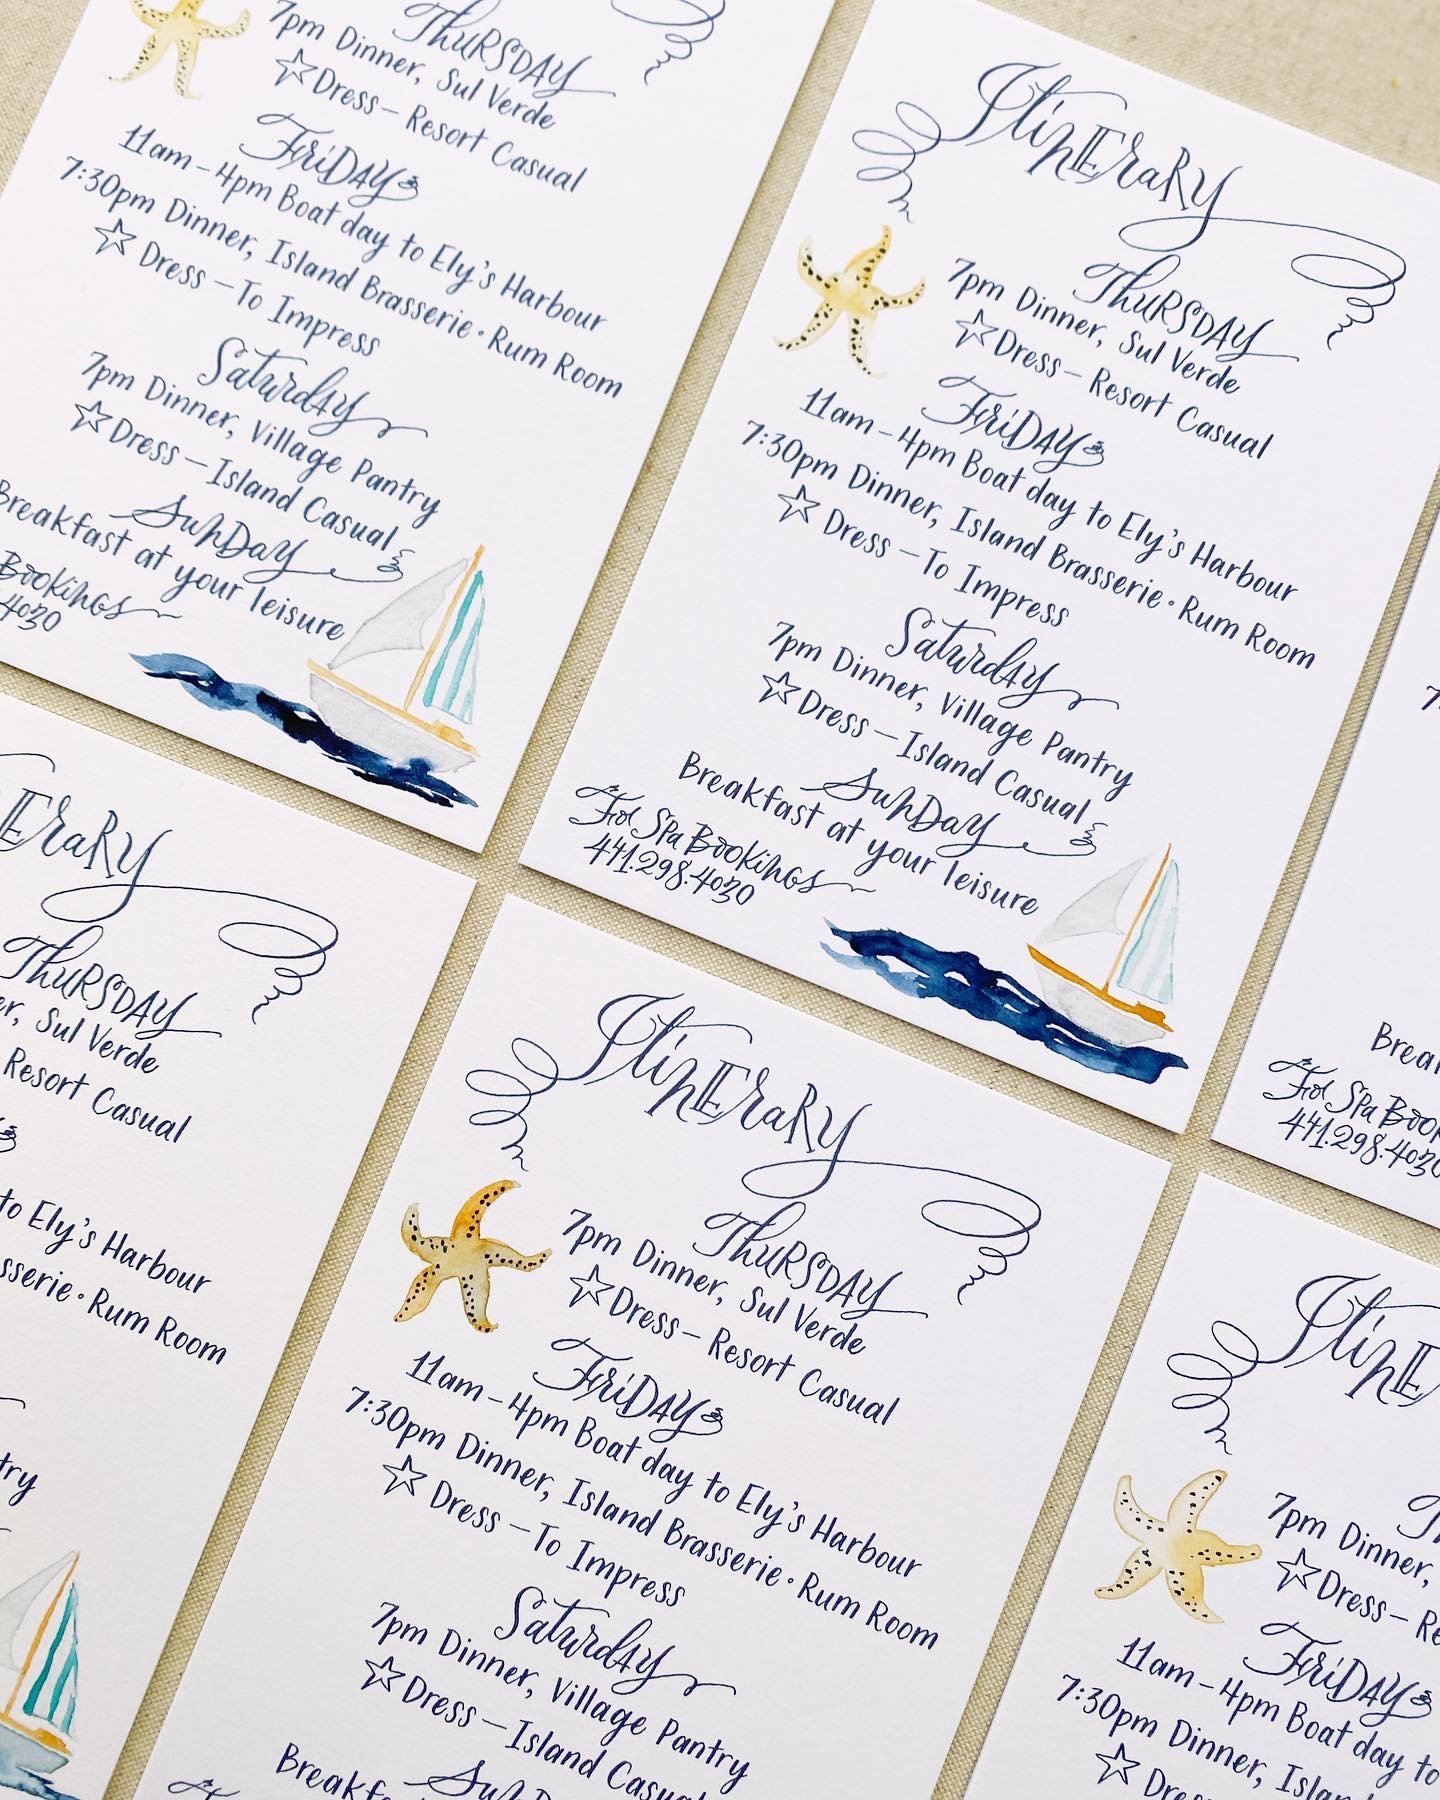 Thursday
7pm Dinner, Sul Verde
Dress – Resort Casual
Friday
11am – 4pm Boat day to Ely's Harbour
7:30pm Dinner, Island Brasserie • Rum Room
Dress – To Impress
Saturday
7pm Dinner, Village Pantry
Dress – Island Casual
Sunday
Breakfast at your leisure
Bookings
4030
Itinerary
Thursday
7pm Dinner, Sul Verde
Dress – Resort Casual
Friday
11am – 4pm Boat day to Ely's Harbour
7:30pm Dinner, Island Brasserie • Rum Room
Dress – To Impress
Saturday
7pm Dinner, Village Pantry
Dress – Island Casual
Sunday
Breakfast at your leisure
For Spa Bookings
441.298.4030
For Spa
441.298.4030
Thursday
Sul Verde
Resort Casual
to Ely's Harbour
• Rum Room
Itinerary
Thursday
7pm Dinner, Sul Verde
Dress – Resort Casual
Friday
11am – 4pm Boat day to Ely's Harbour
7:30pm Dinner, Island Brasserie • Rum Room
Dress – To Impress
Saturday
7pm Dinner, Village Pantry
Dress – Island Casual
Sunday
7pm Dinner,
Dress –
Friday
11am – 4pm Boat day to
7:30pm Dinner,